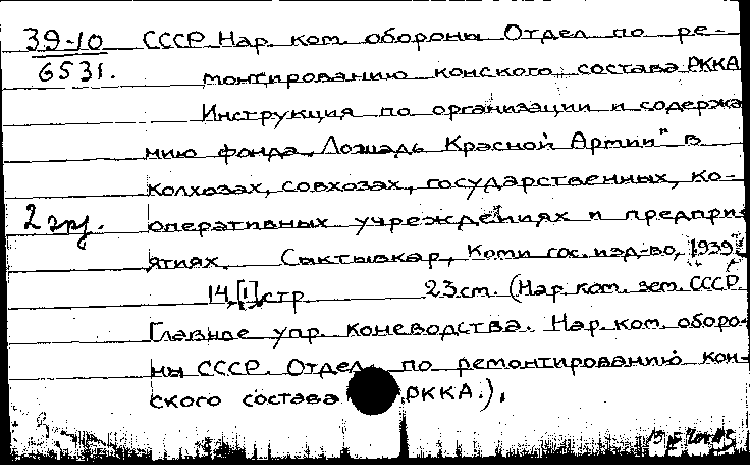 39-10 СССР Нар. ком. обороны Отдел по ре-
6531. монтированию конского состава РККА
Инструкция по организации и содержа
нию фонда „Лошадь Красной Армии" в
колхозах, совхозах, государственных, ко-
2 экз. оперативных учреждениях и предпри
ятиях. Сыктывкар, Коми гос. изд-во, 1939
14,[1] стр. 23 см. (Нар. ком. зем. СССР.
Главное упр. коневодства. Нар. ком. оборо-
ны СССР. Отдел по ремонтированию кон-
ского состава РККА.).